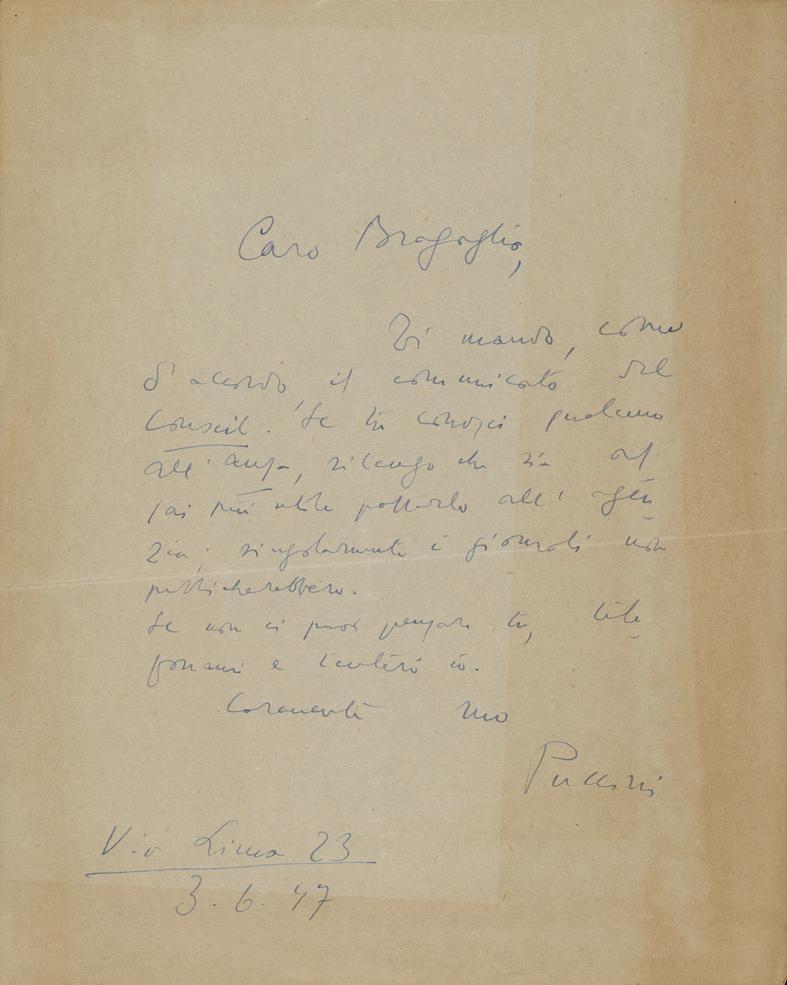 Caro Bragaglia,
Ti mando, come
d'accordo, il comunicato del
Conseil. Se tu conosci qualcuno
all'Ansa, ritengo che sia as-
sai più utile passarlo all'agen
zia; singolarmente i giornali non
pubblicherebbero.
Se non ci puoi pensare tu, tele
fonami e tenterò io.
Caramente tuo
Puccini
Via Lima 23
3.6.47